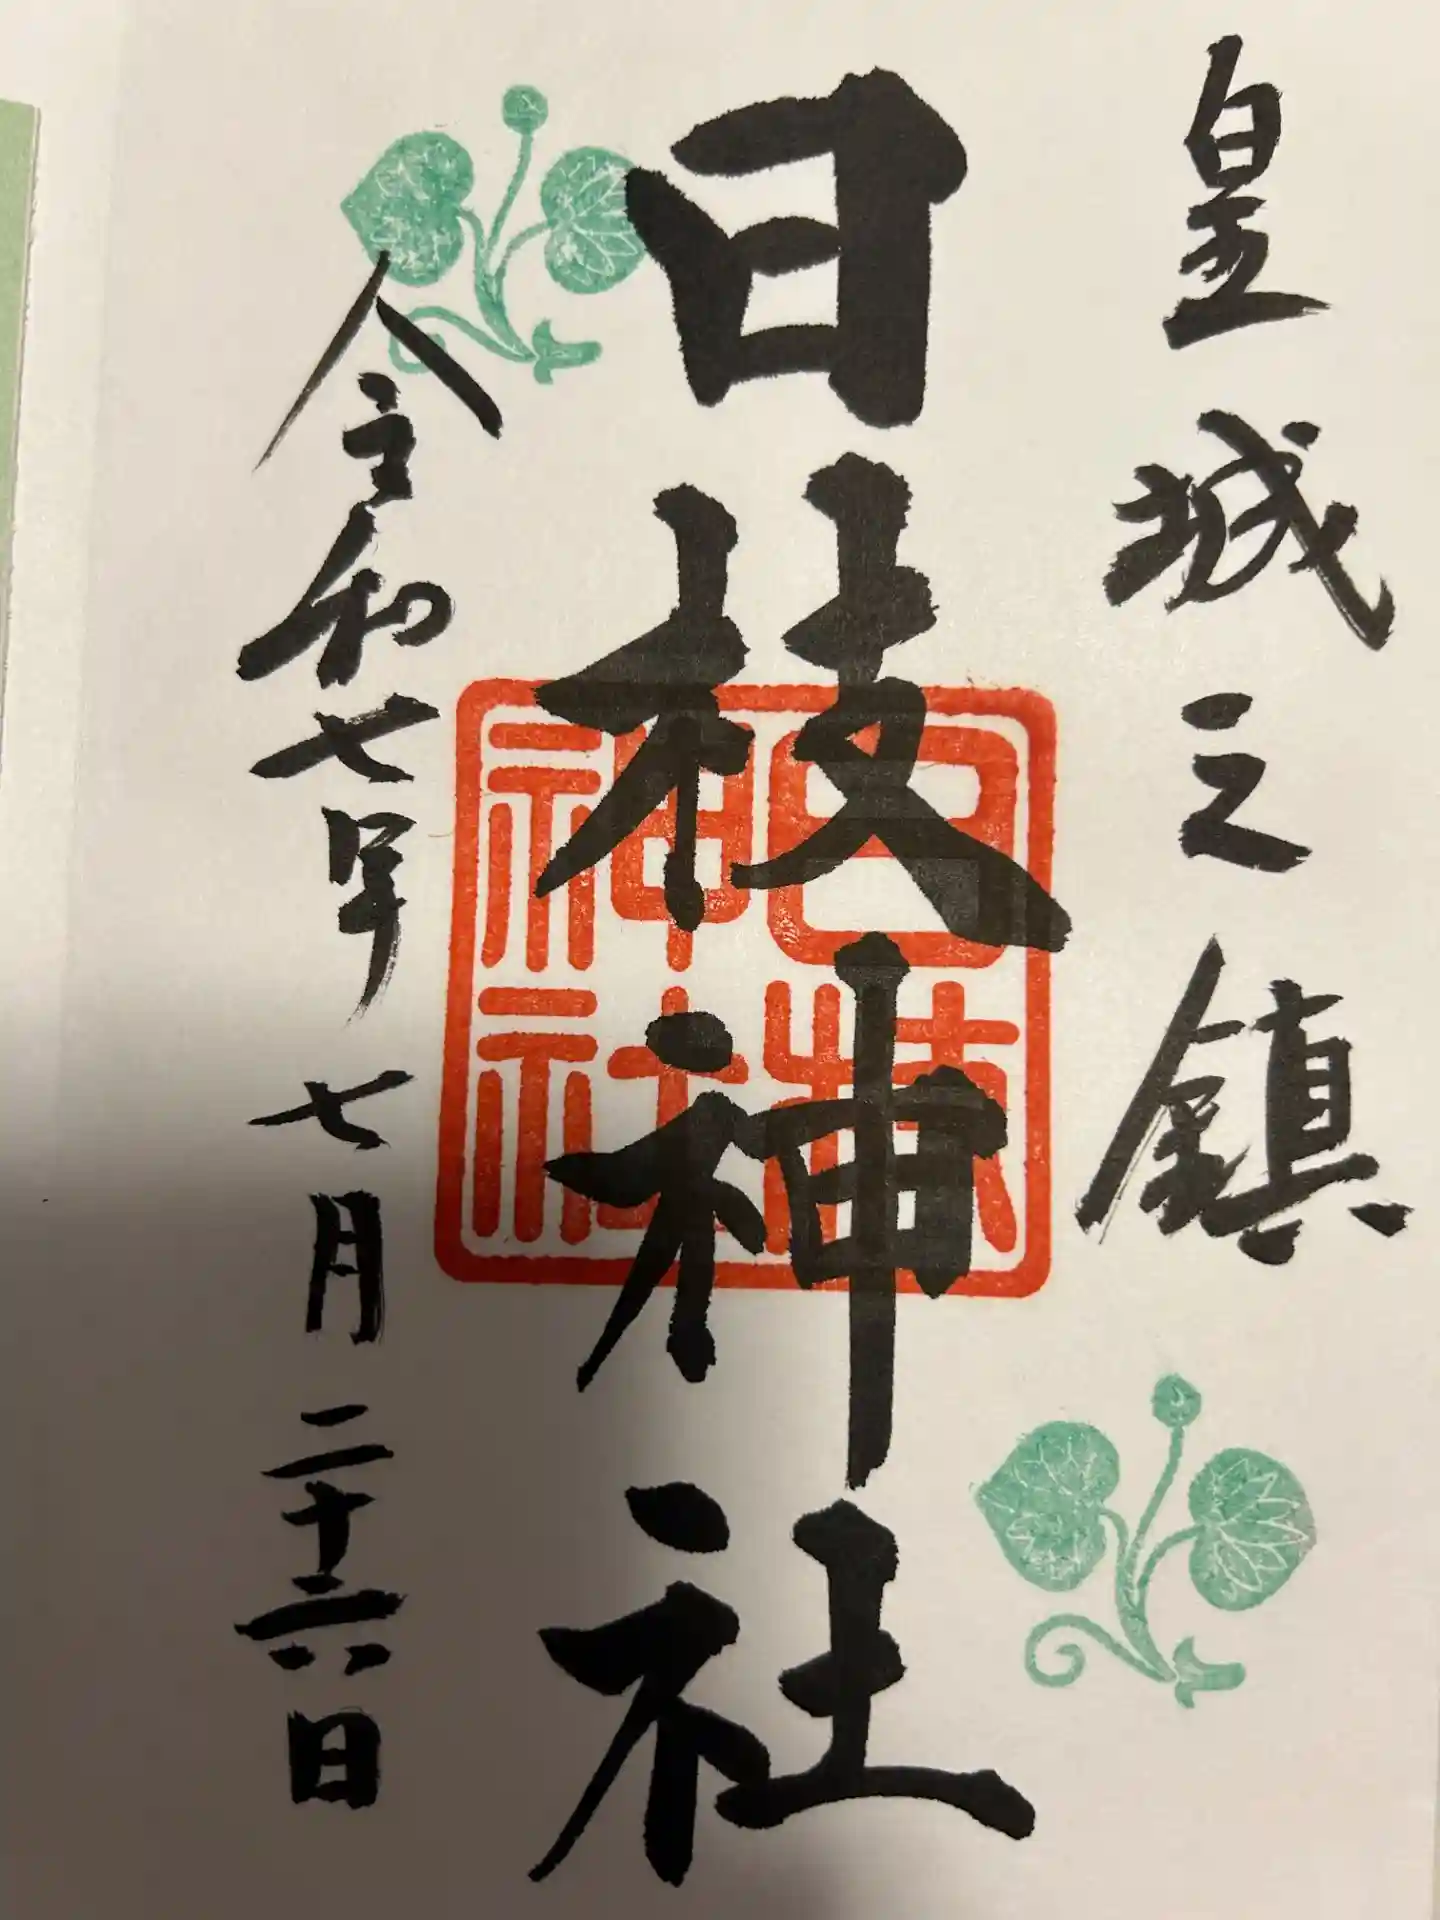 皇城之鎮
日枝神社
日枝神社
令和七年七月二十六日